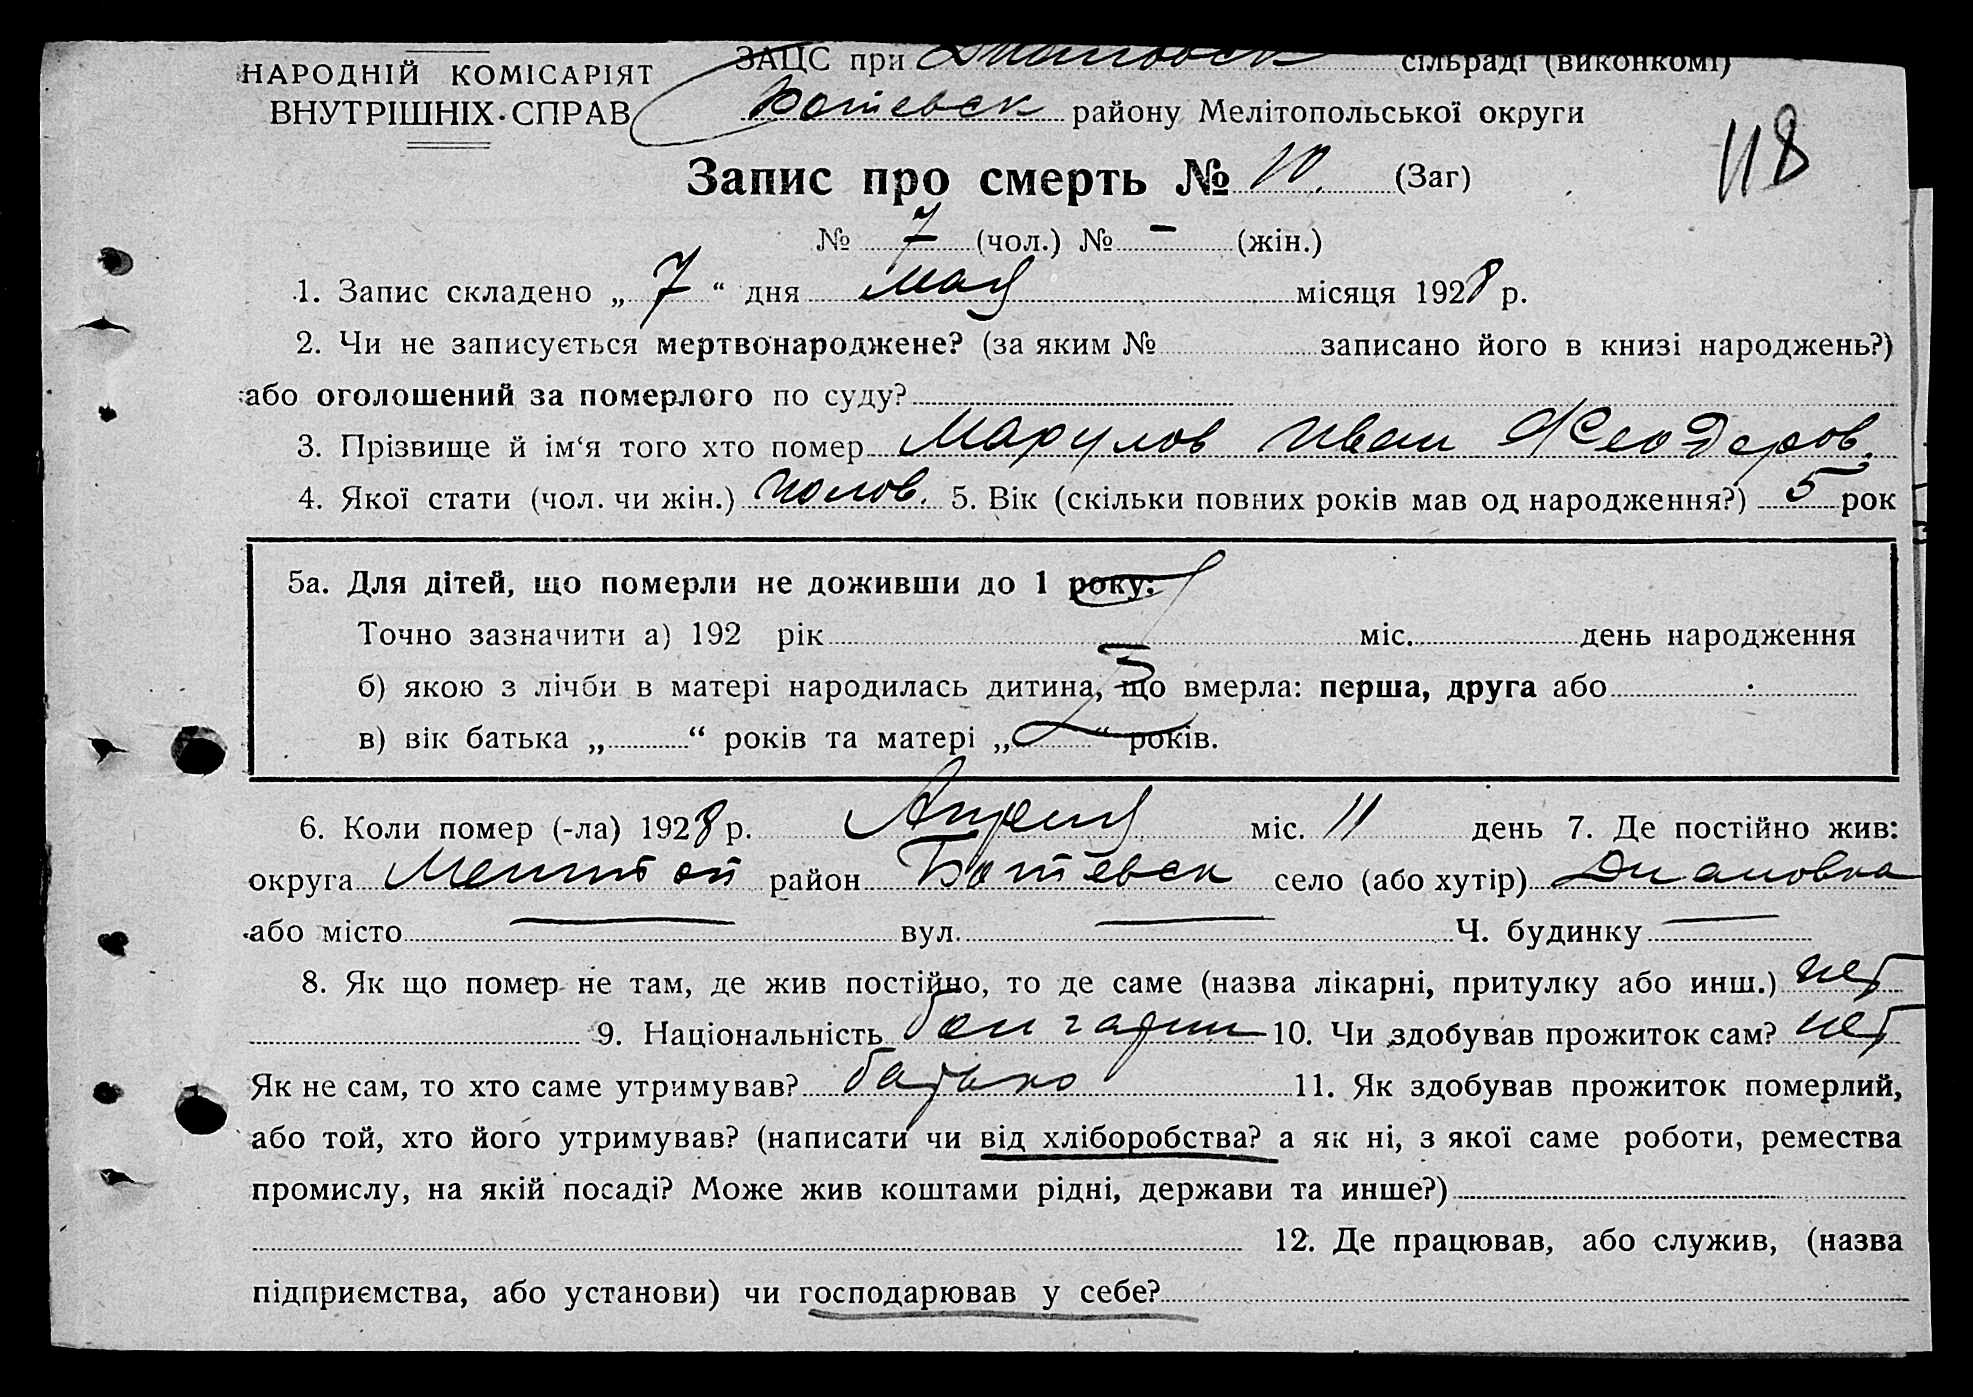 НАРОДНІЙ КОМІСАРІЯТ
ВНУТРІШНІХ СПРАВ
ЗАЦС при Диановск сільраді (виконкомі)
Ботевск району Мелітопольської округи
118
Запис про смерть № 10. (Заг)
№ 7 (чол.) № — (жін.)
1. Запис складено „ 7 “ дня мая місяця 1928 р.
2. Чи не записується мертвонароджене? (за яким № записано його в книзі народжень?)
або оголошений за померлого по суду?
3. Прізвище й ім‘я того хто помер Марулов Иван Феодоров.
4. Якої стати (чол. чи жін.) чолов. 5. Вік (скільки повних років мав од народження?) 5 рок
5а. Для дітей, що померли не доживши до 1 року:
Точно зазначити а) 192 рік міс. день народження
б) якою з лічби в матері народилась дитина, що вмерла: перша, друга або
в) вік батька „ “ років та матері „ “ років.
6. Коли помер (-ла) 1928 р. Апреля міс. 11 день 7. Де постійно жив:
округа Мелитоп район Ботевск село (або хутір) Диановка
або місто — вул. — Ч. будинку —
8. Як що помер не там, де жив постійно, то де саме (назва лікарні, притулку або инш.) нет
9. Національність болгарин 10. Чи здобував прожиток сам? нет
Як не сам, то хто саме утримував? батько 11. Як здобував прожиток померлий,
або той, хто його утримував? (написати чи від хліборобства? а як ні, з якої саме роботи, ремества
промислу, на якій посаді? Може жив коштами рідні, держави та инше?)
12. Де працював, або служив, (назва
підприємства, або установи) чи господарював у себе?